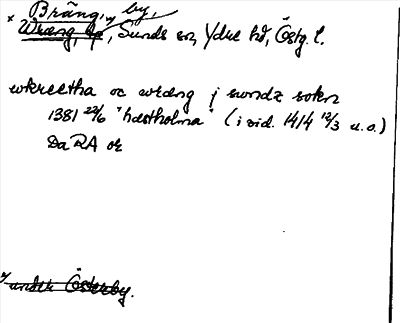 × Bräng, by,
Wræng, by, Sunds sn, Ydre hd, Östg. l.
wkreetha oc wræng j sundz sokn
1381 22/6 "hæstholma" (i vid. 1414 12/3 u.o.)
Da RA or
under Österby.